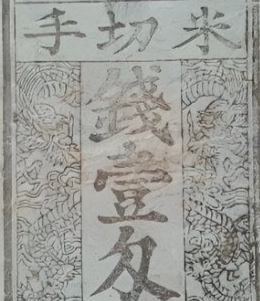 米切手
錢壹匁